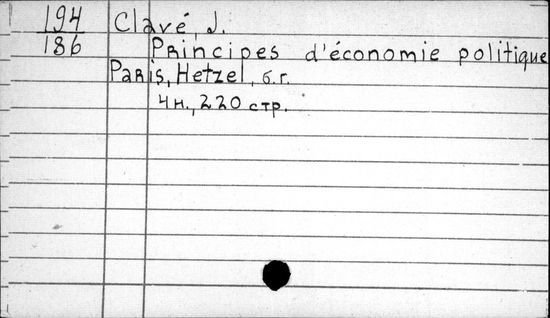 194 Clavé, J.
186 Principes d'économie politique
Paris, Hetzel, б.г.
4н., 220 стр.